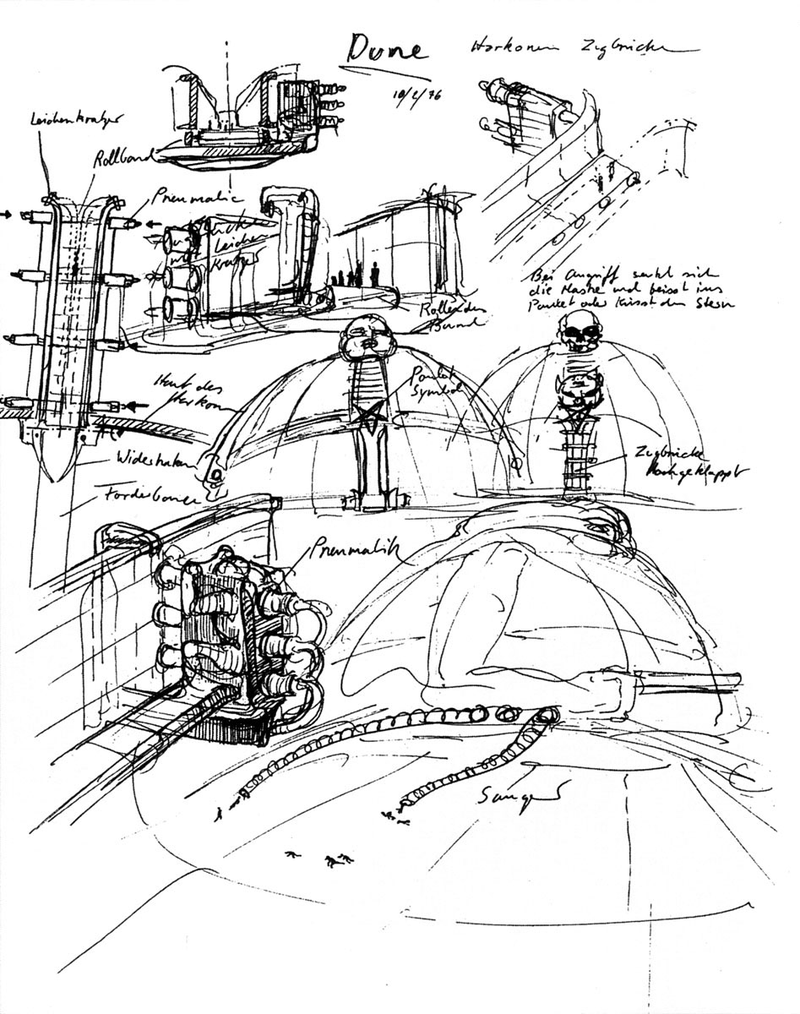 Dune
Harkonen Zugbrücke
10/2/76
Leichenkratzer
Rollband
Pneumatic
Leichen
Kratzer
Rollendes
Band
Bei Angriff senkt sich
die Maske und beisst ins
Pentakel oder küsst den Stern
Haut des
Harkon
Symbol
Widerhaken
Zugbrücke
Hochgeklappt
Pneumatik
Sauger